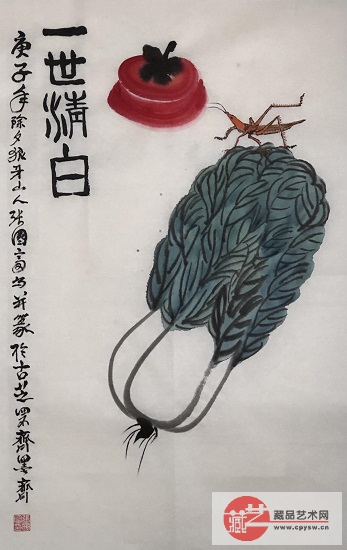 一世清白
庚子年除夕狼牙山人张国富写并篆于古芝罘齐墨斋
藏艺
藏品艺术网
www.cpysw.cn